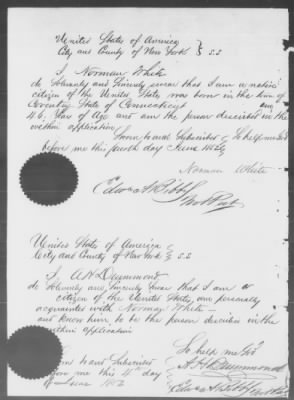 United States of America
City and County of New York } S.S
I, Norman White
do Solemnly and Sincerely swear that I am a native
citizen of the United States, was born in the town of
Coventry State of Connecticut am
46, Years of Age and am the person described in the
within application So help me God
Sworn to and Subscribed
before me this fourth day June
Norman White
United States of America
City and County of New York } S.S
I, A H Drummond
do Solemnly and Sincerely swear that I am a
citizen of the United States, am personally
acquainted with Norman White
and know him to be the person described in the
within application
So help me God
Sworn to and Subscribed
before me this 4th day
of June
A H Drummond